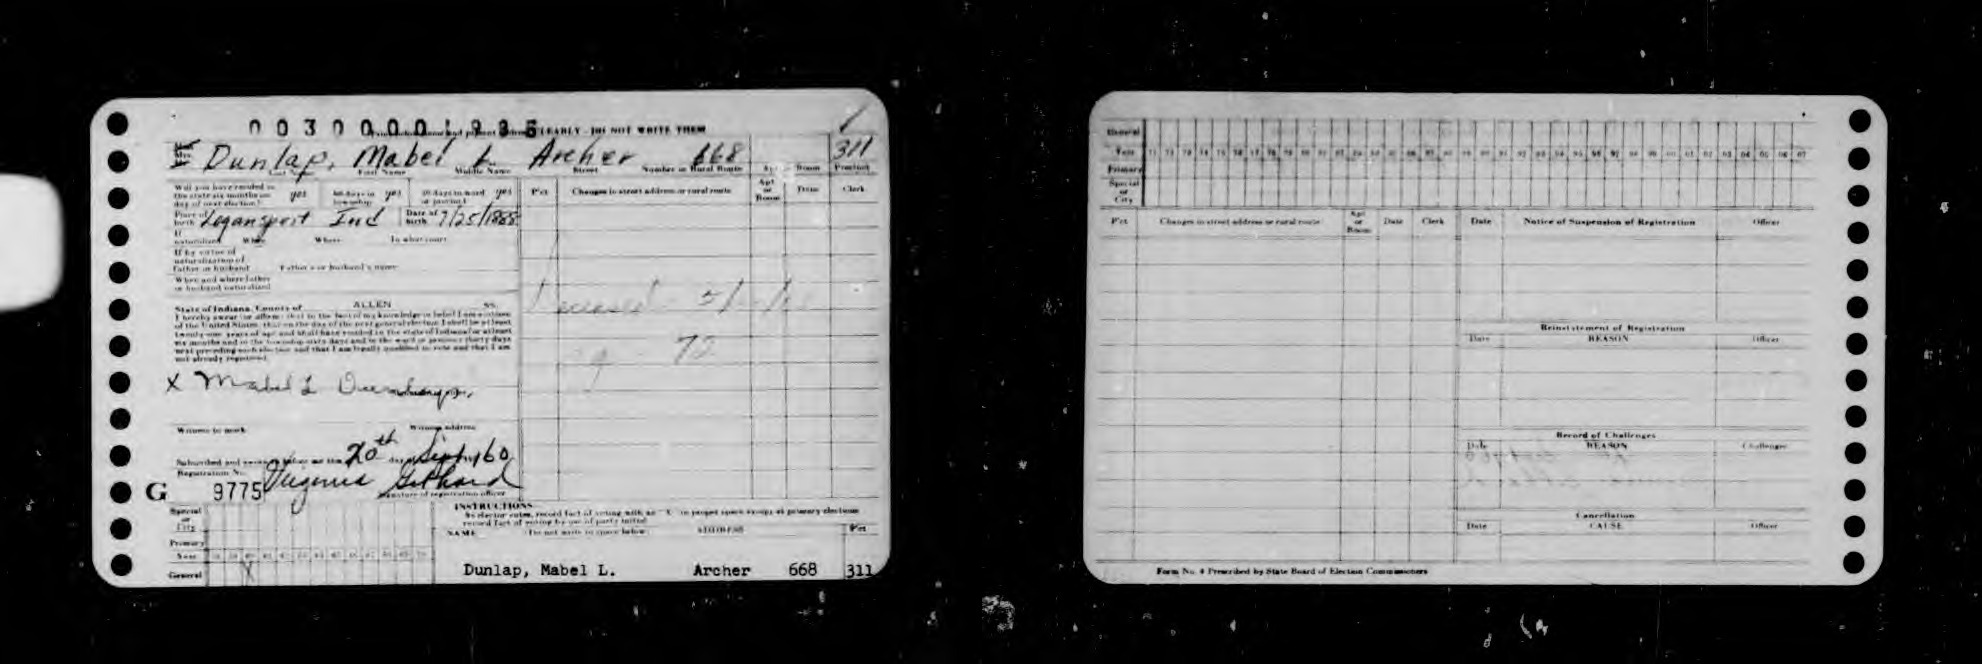 0030000193
CLEARLY - DO NOT WRITE THEM
Dunlap, Mabel L. Archer 668 311
Last Name First Name Middle Name Street Number or Rural Route Apt Room Precinct
Will you have resided in the state six months on day of next election? yes 60 days in township yes 30 days in ward or precinct yes
Pct Changes in street address or rural route Apt or Room Date Clerk
Place of birth Logansport Ind Date of birth 7/25/1888
If naturalized When Where In what court
If by virtue of naturalization of Father or husband Father's or husband's name
When and where father or husband naturalized
State of Indiana, County of ALLEN SS.
I hereby swear (or affirm) that to the best of my knowledge or belief I am a citizen
of the United States, that on the day of the next general election I shall be at least
twenty-one years of age and shall have resided in the state of Indiana for at least
six months and in the township sixty days and in the ward or precinct thirty days
next preceding such election and that I am legally qualified to vote and that I am
not already registered.
Deceased
70
X Mabel L Dunlap
Witness to mark Witness address
Subscribed and sworn to before me this 20th day Sept 1960
Registration No.
G 9775 Virginia Gethard
Signature of registration officer
INSTRUCTIONS
As elector votes, record fact of voting with an "X" in proper space except at primary elections
record fact of voting by use of party initial
NAME (Do not write in space below) ADDRESS Pct
Special or City
Primary
Year
General X
Dunlap, Mabel L. Archer 668 311
General
Year
Primary
Special or City
Pct Changes in street address or rural route Apt or Room Date Clerk Date Notice of Suspension of Registration Officer
Reinstatement of Registration
Date REASON Officer
Record of Challenges
Date REASON Challenger
Cancellation
Date CAUSE Officer
Form No. 4 Prescribed by State Board of Election Commissioners